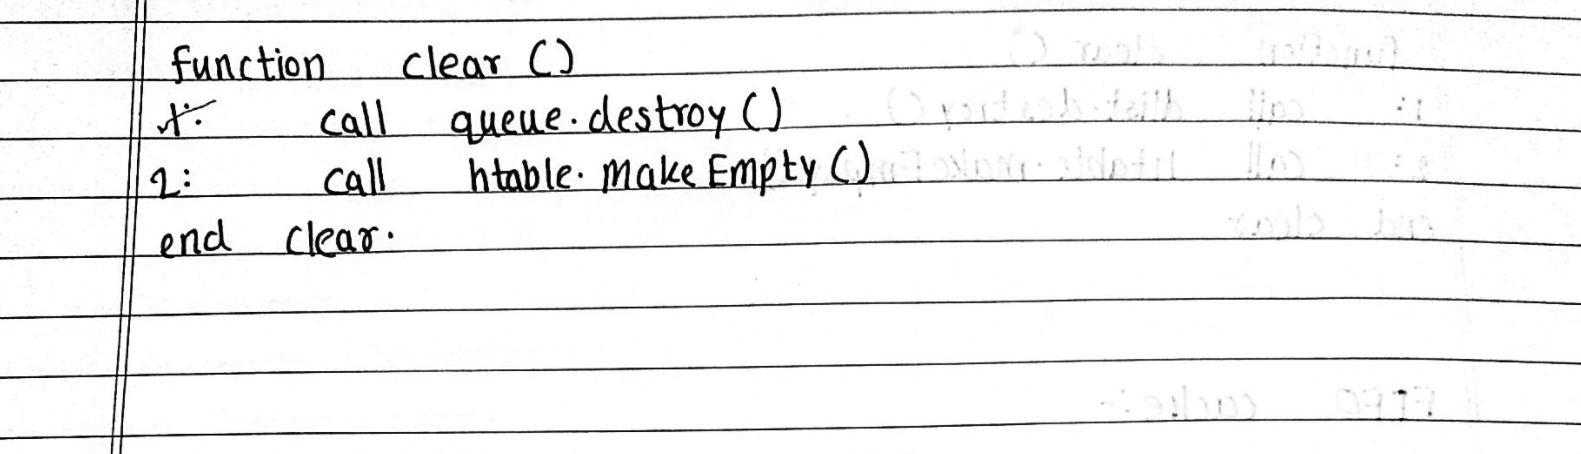 function clear ()
1: call queue.destroy ()
2: call htable.makeEmpty ()
end clear.